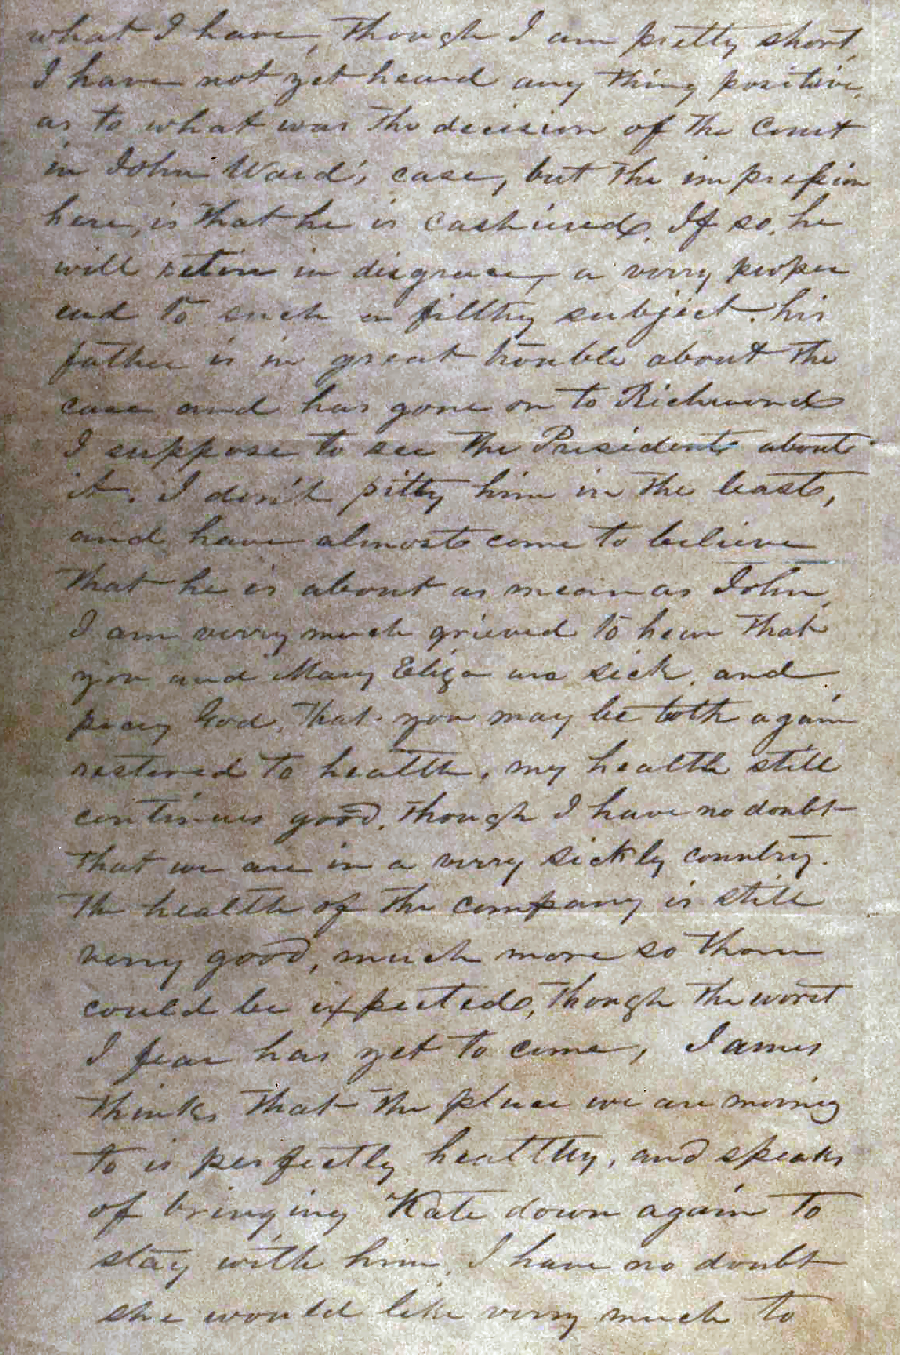 what I have, though I am pretty short,
I have not yet heard any thing positive,
as to what was the decision of the Court
in John Ward's case, but the impression
here, is that he is cashiered. If so, he
will retire in disgrace, a verry proper
end to such a filthy subject. his
father is in great trouble about the
case and has gone on to Richmond
I suppose to see the President about
it. I don't pitty him in the least,
and have almost come to believe
that he is about as mean as John,
I am verry much grieved to hear that
you and Mary Eliza are sick, and
pray God, that you may be both again
restored to health, my health still
continues good, though I have no doubt
that we are in a verry sickly country.
The health of the company is still
verry good, much more so than
could be expected, though the worst
I fear has yet to come, James
thinks that the place we are moving
to is perfectly healthy, and speaks
of bringing Kate down again to
stay with him, I have no doubt
she would like verry much to